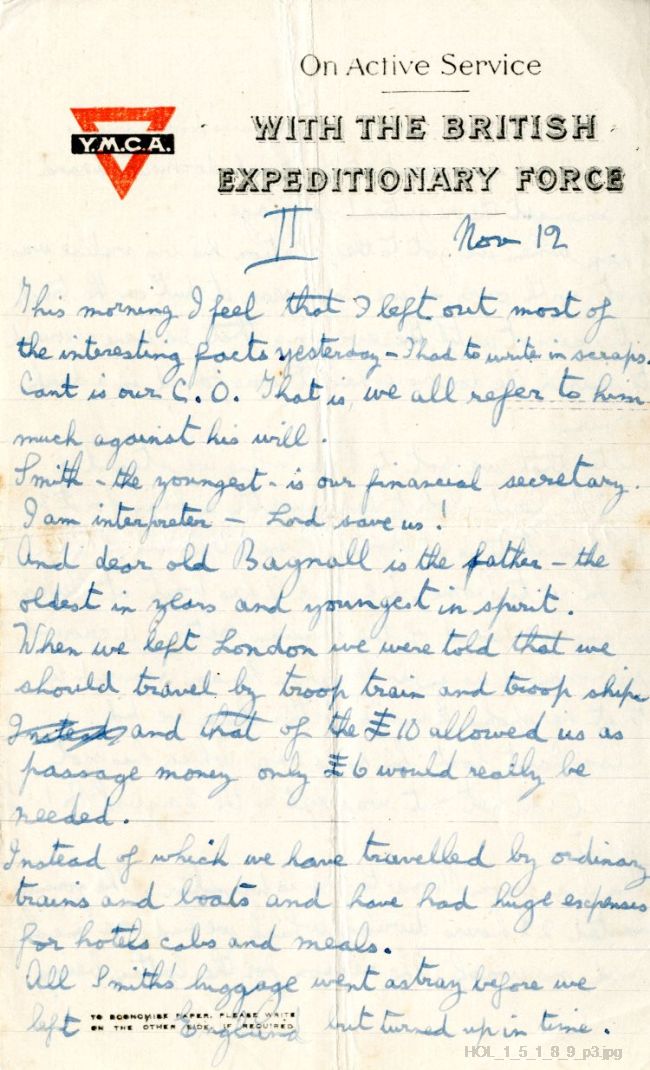 On Active Service
WITH THE BRITISH
Y.M.C.A.
EXPEDITIONARY FORCE
II Nov 12
This morning I feel that I left out most of
the interesting facts yesterday - I had to write in scraps.
Cant is our C.O. That is, we all refer to him
much against his will.
Smith - the youngest - is our financial secretary.
I am interpreter - Lord save us!
And dear old Bagnall is the father - the
oldest in years and youngest in spirit.
When we left London we were told that we
should travel by troop train and troop ship
and that of the £10 allowed us as
passage money only £6 would really be
needed.
Instead of which we have travelled by ordinary
trains and boats and have had huge expenses
for hotels cabs and meals.
All Smith's luggage went astray before we
left England but turned up in time.
TO ECONOMISE PAPER, PLEASE WRITE
ON THE OTHER SIDE, IF REQUIRED
HOL_1_5_1_8_9_p3.jpg